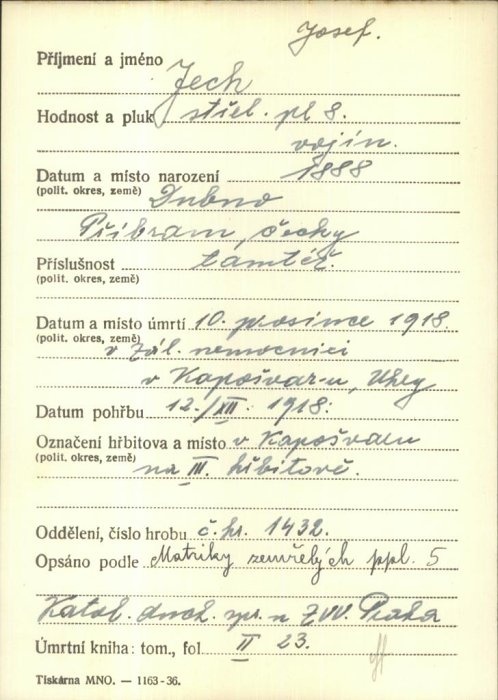 Josef.
Příjmení a jméno Jech
Hodnost a pluk střel. pl 8.
vojín.
Datum a místo narození 1888
(polit. okres, země) Dubno
Příbram, čechy
Příslušnost tamtéž.
(polit. okres, země)
Datum a místo úmrtí 10. prosince 1918.
(polit. okres, země) v zál. nemocnici
v Kapošvar-u, Uhry
Datum pohřbu 12./XII. 1918.
Označení hřbitova a místo v Kapošvaru
(polit. okres, země) na III. hřbitově.
Oddělení, číslo hrobu č. hr. 1432.
Opsáno podle Matriky zemřelých ppl. 5
Katol. duch. spr. u ZVV. Praha
Úmrtní kniha: tom., fol II 23.
Tiskárna MNO. — 1163-36.